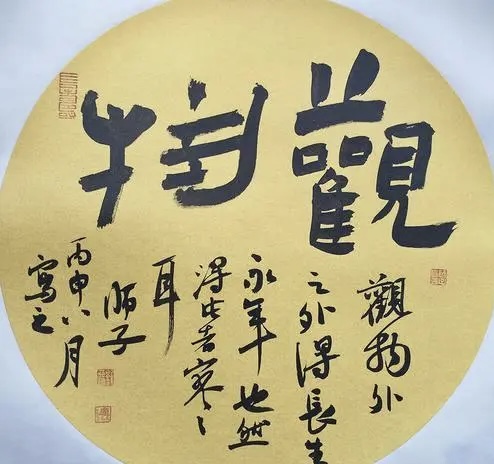 觀物
觀物外
之外得長生
永年也然
得此者寥々
耳
丙申八月
子
寫之